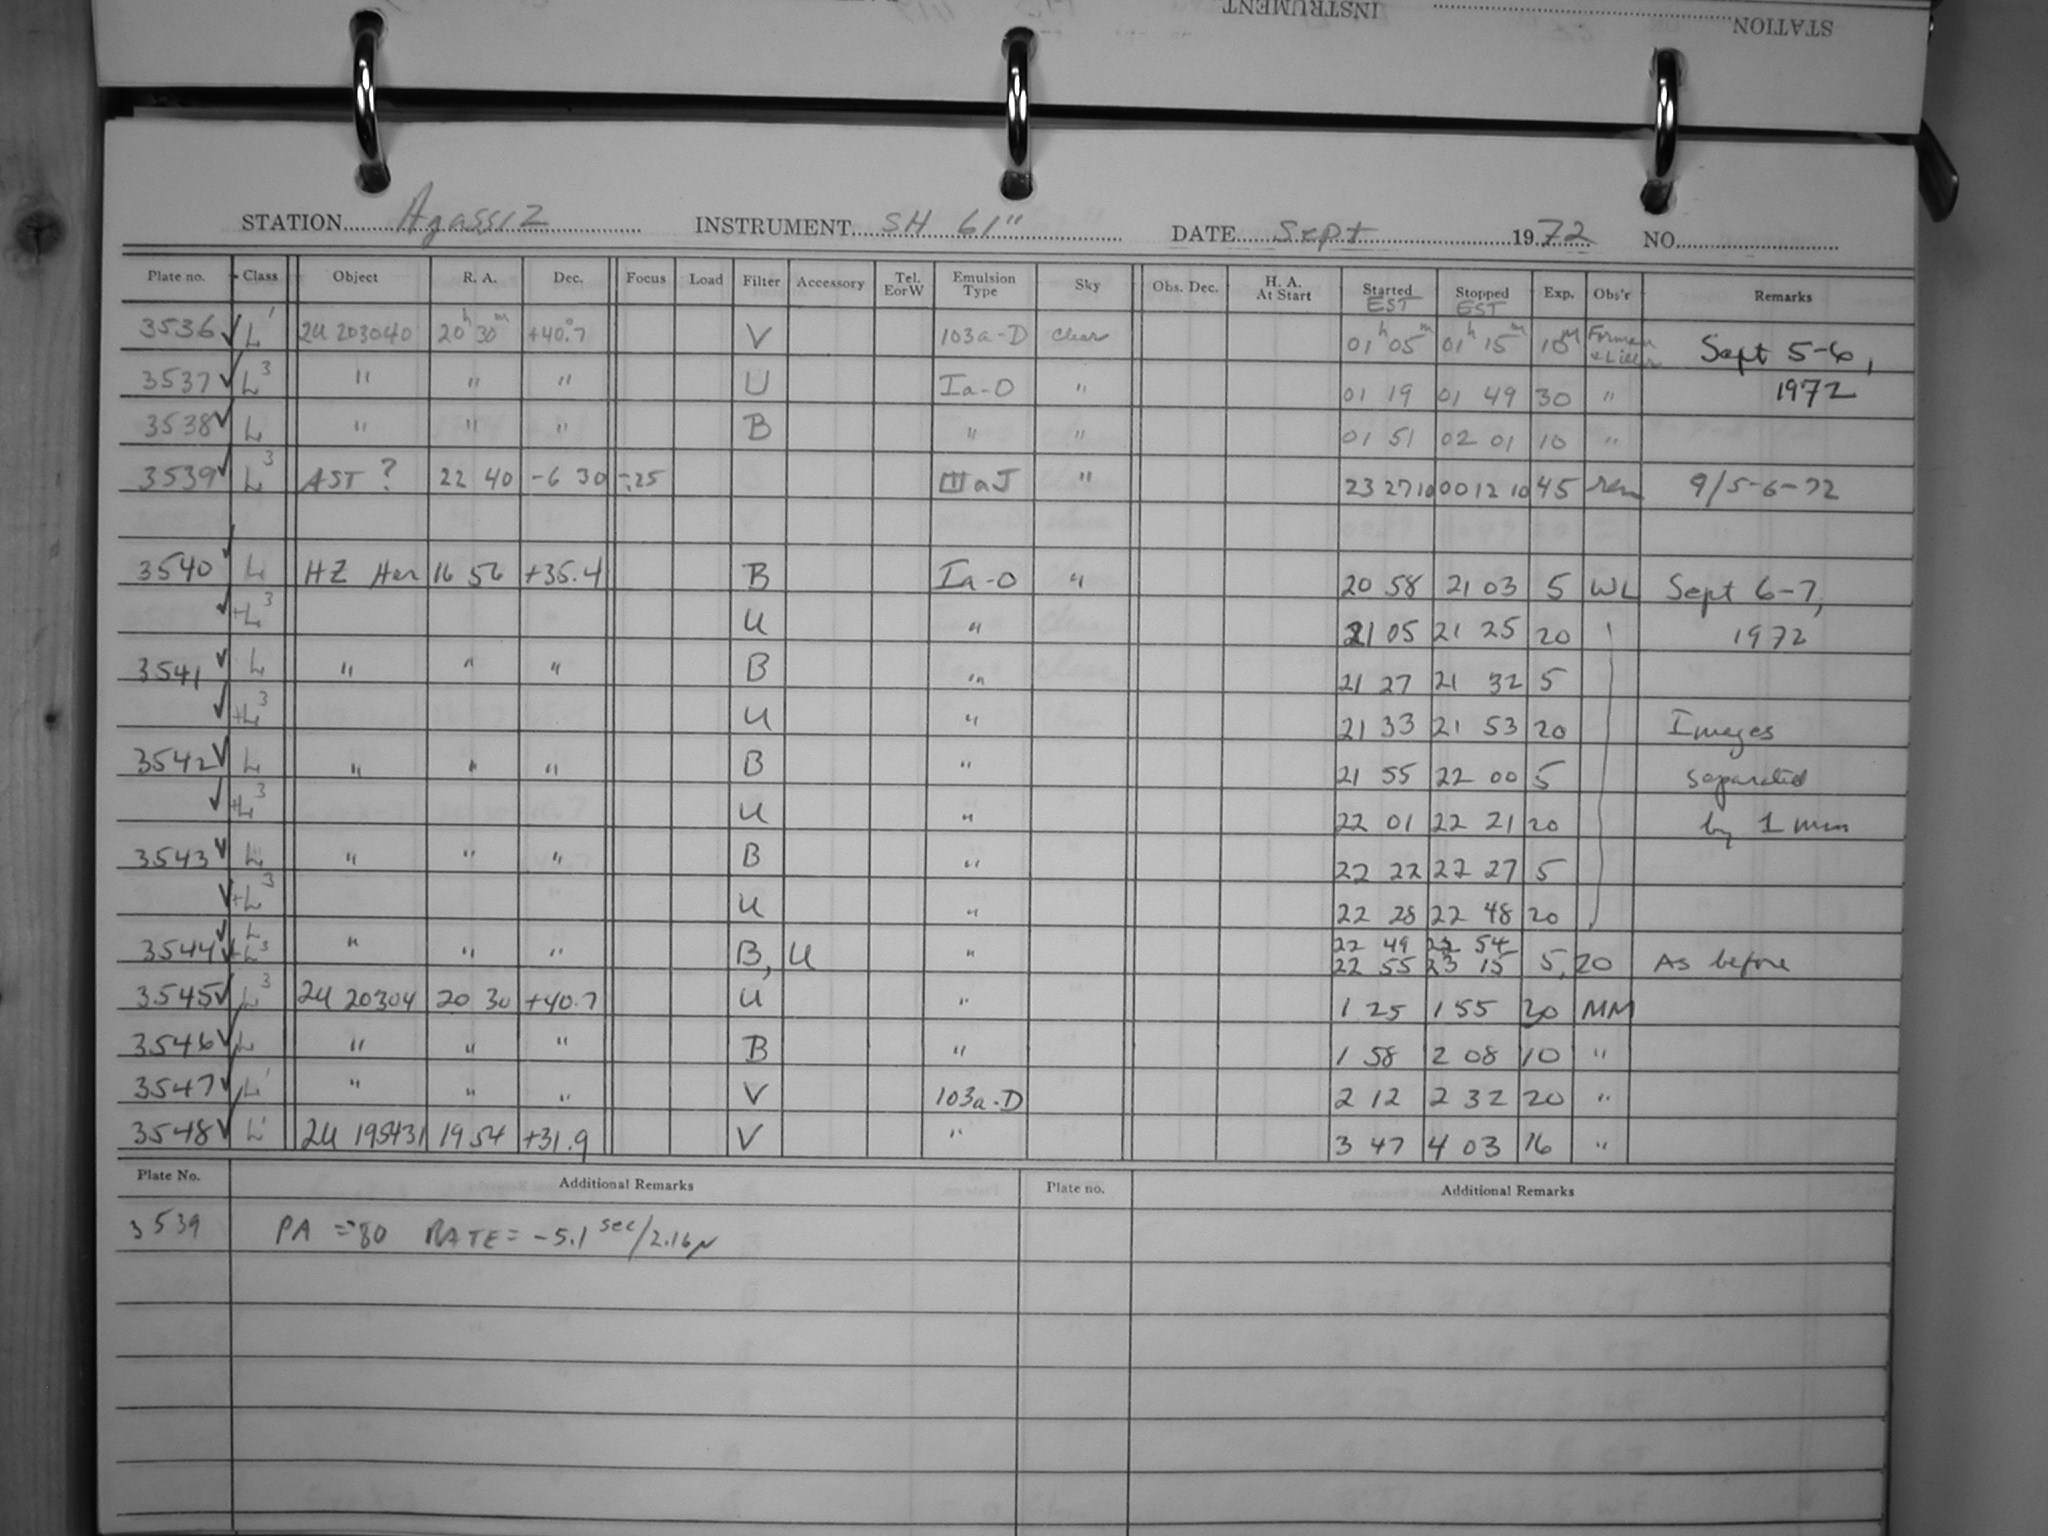 INSTRUMENT
STATION
STATION Agassiz INSTRUMENT SH 61" DATE Sept 1972 NO.
Plate no. Class Object R. A. Dec. Focus Load Filter Accessory Tel. E or W Emulsion Type Sky Obs. Dec. H. A. At Start Started EST Stopped EST Exp. Obs'r Remarks
3536 ✓ L' 2U 203040 20h 30m +40°.7 V 103a-D clear 01h 05m 01h 15m 10m Forman & Liller Sept 5-6,
3537 ✓ L3 " " " U Ia-O " 01 19 01 49 30 " 1972
3538 ✓ L " " " B " " 01 51 02 01 10 "
3539 ✓ L3 AST ? 22 40 -6 30 -.25 IIIaJ " 23 27 10 00 12 10 45 9/5-6-72
3540 ✓ L HZ Her 16 56 +35.4 B Ia-O " 20 58 21 03 5 WL Sept 6-7,
✓ +L3 U " 21 05 21 25 20 1972
3541 ✓ L " " " B " 21 27 21 32 5
✓ +L3 U " 21 33 21 53 20 Images
3542 ✓ L " " " B " 21 55 22 00 5 separated
✓ +L3 U " 22 01 22 21 20 by 1 mm
3543 ✓ L " " " B " 22 22 22 27 5
✓ +L3 U " 22 28 22 48 20
3544 ✓ L +L3 " " " B, U " 22 49 22 54 22 55 23 15 5, 20 As before
3545 ✓ L3 2U 20304 20 30 +40.7 U " 1 25 1 55 30 MM
3546 ✓ L " " " B " 1 58 2 08 10 "
3547 ✓ L' " " " V 103a-D 2 12 2 32 20 "
3548 ✓ L' 2U 195431 19 54 +31.9 V " 3 47 4 03 16 "
Plate No. Additional Remarks Plate no. Additional Remarks
3539 PA = 80 RATE = -5.1 sec/2.16μ